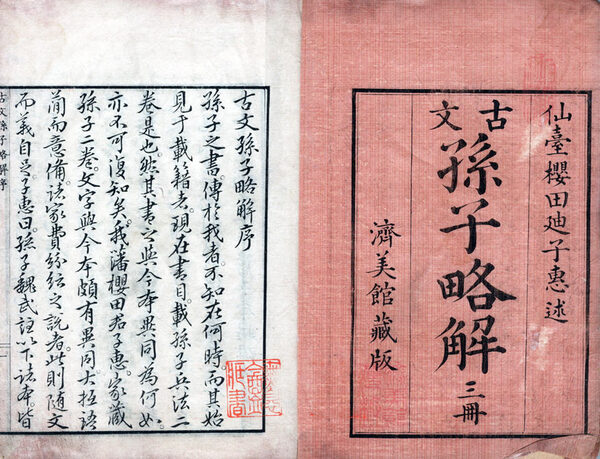 仙臺櫻田廸子惠述
古文
孫子略解
三冊
濟美館藏版
古文孫子略解序
孫子之書傳於我者不知在何時而其始
見于載籍者現在書目載孫子兵法二
卷是也然其書之與今本異同為何如
亦不可復知矣我藩櫻田君子惠家藏
孫子二卷文字與今本頗有異同大抵語
簡而意備諸家費紛紜之說者此則隨文
而義自足子惠曰孫子魏武註以下諸本皆
古文孫子略解序